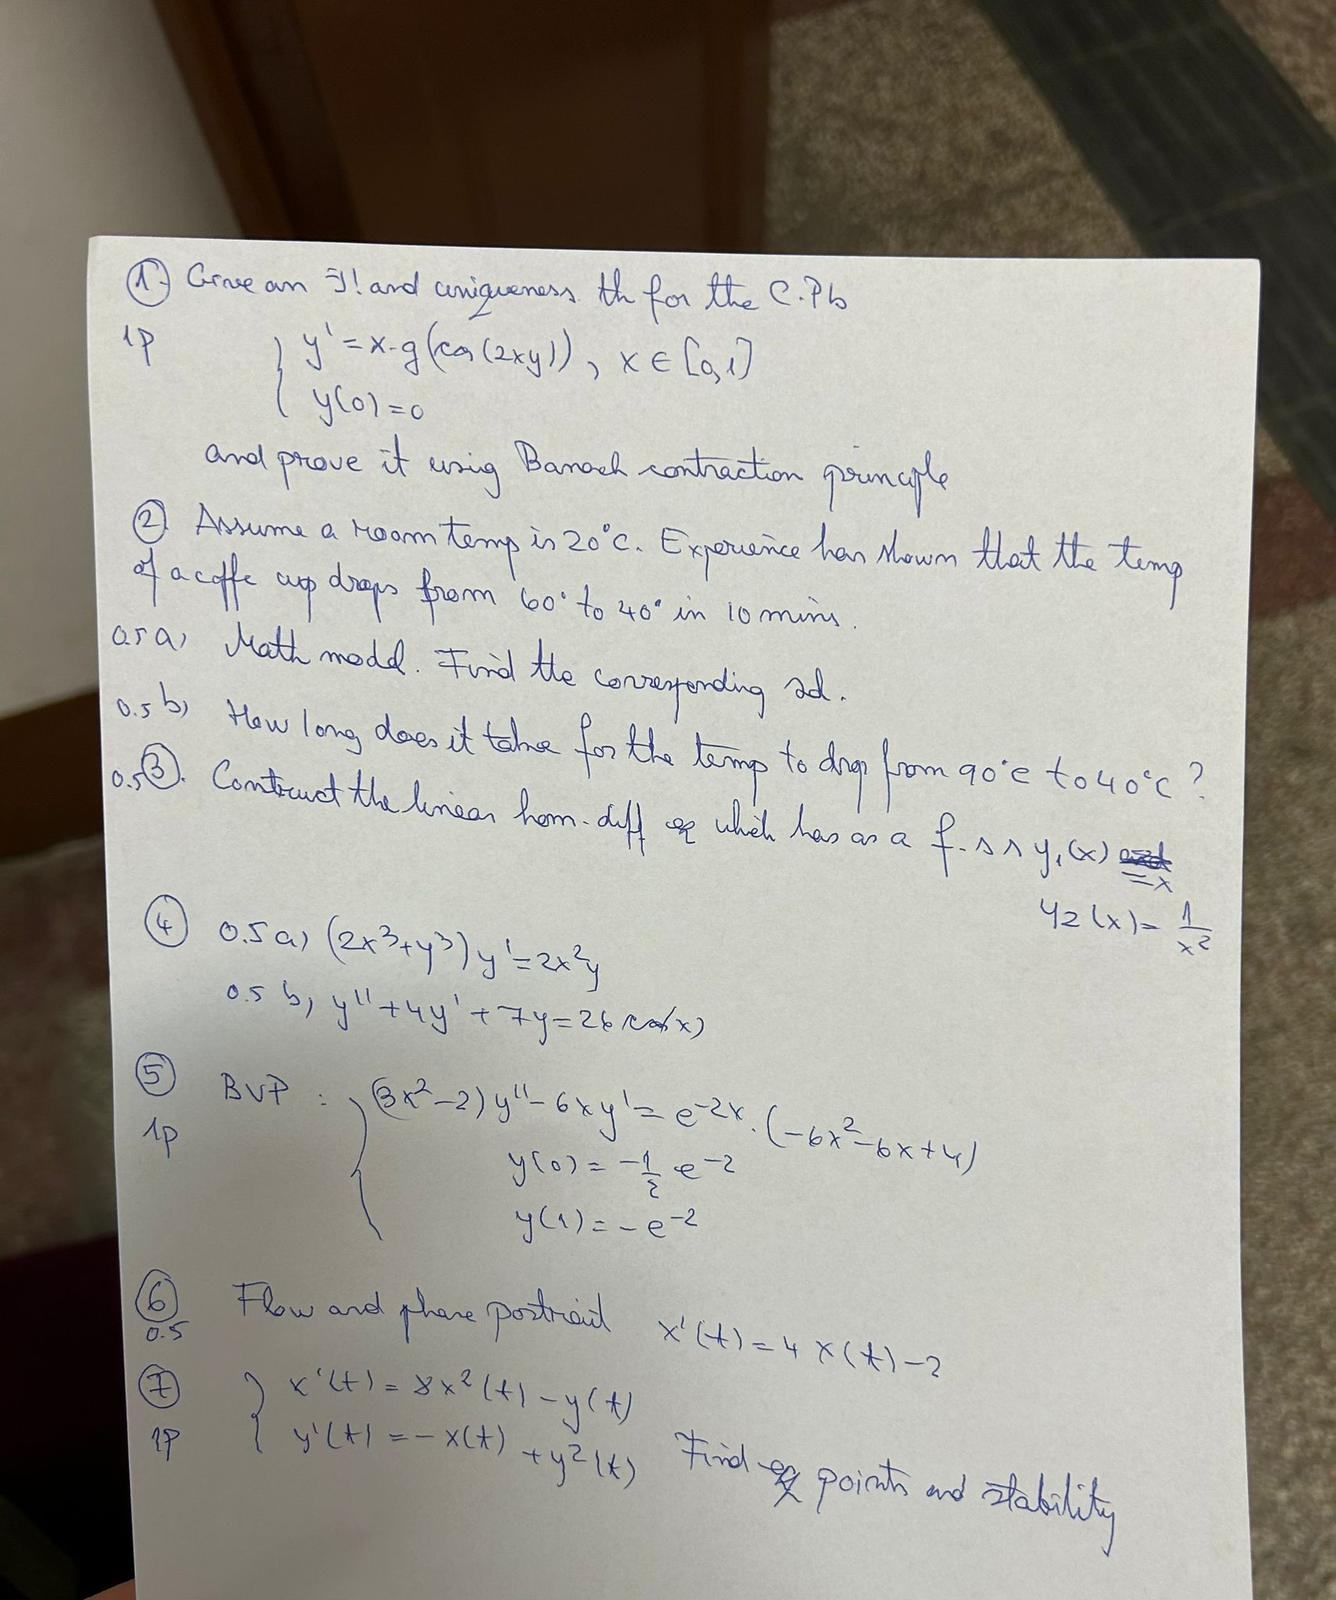 ① Give an ∃! and uniqueness th for the C.Pb
1p { y' = x·g(cos(2xy)), x ∈ [0,1]
y(0)=0
and prove it using Banach contraction principle
② Assume a room temp is 20°C. Experience has shown that the temp
of a coffe cup drops from 60° to 40° in 10 mins.
0.5 a) Math model. Find the corresponding sol.
0.5 b) How long does it take for the temp to drop from 90°C to 40°C?
0.5 ③. Contruct the linear hom. diff eq which has as a f.s.s y₁(x)
=x
y2(x)= 1/x²
④ 0.5 a) (2x³+y³)y'=2x²y
0.5 b) y''+4y'+7y=26 cos(x)
⑤ BVP : { (3x²-2)y''-6xy'= e^-2x · (-6x²-6x+4)
1p y(0)= -1/2 e^-2
y(1)= -e^-2
⑥ Flow and phase portrait x'(t)=4x(t)-2
0.5
⑦ { x'(t)=8x²(t)-y(t)
1p y'(t)=-x(t)+y²(t) Find eq points and stability